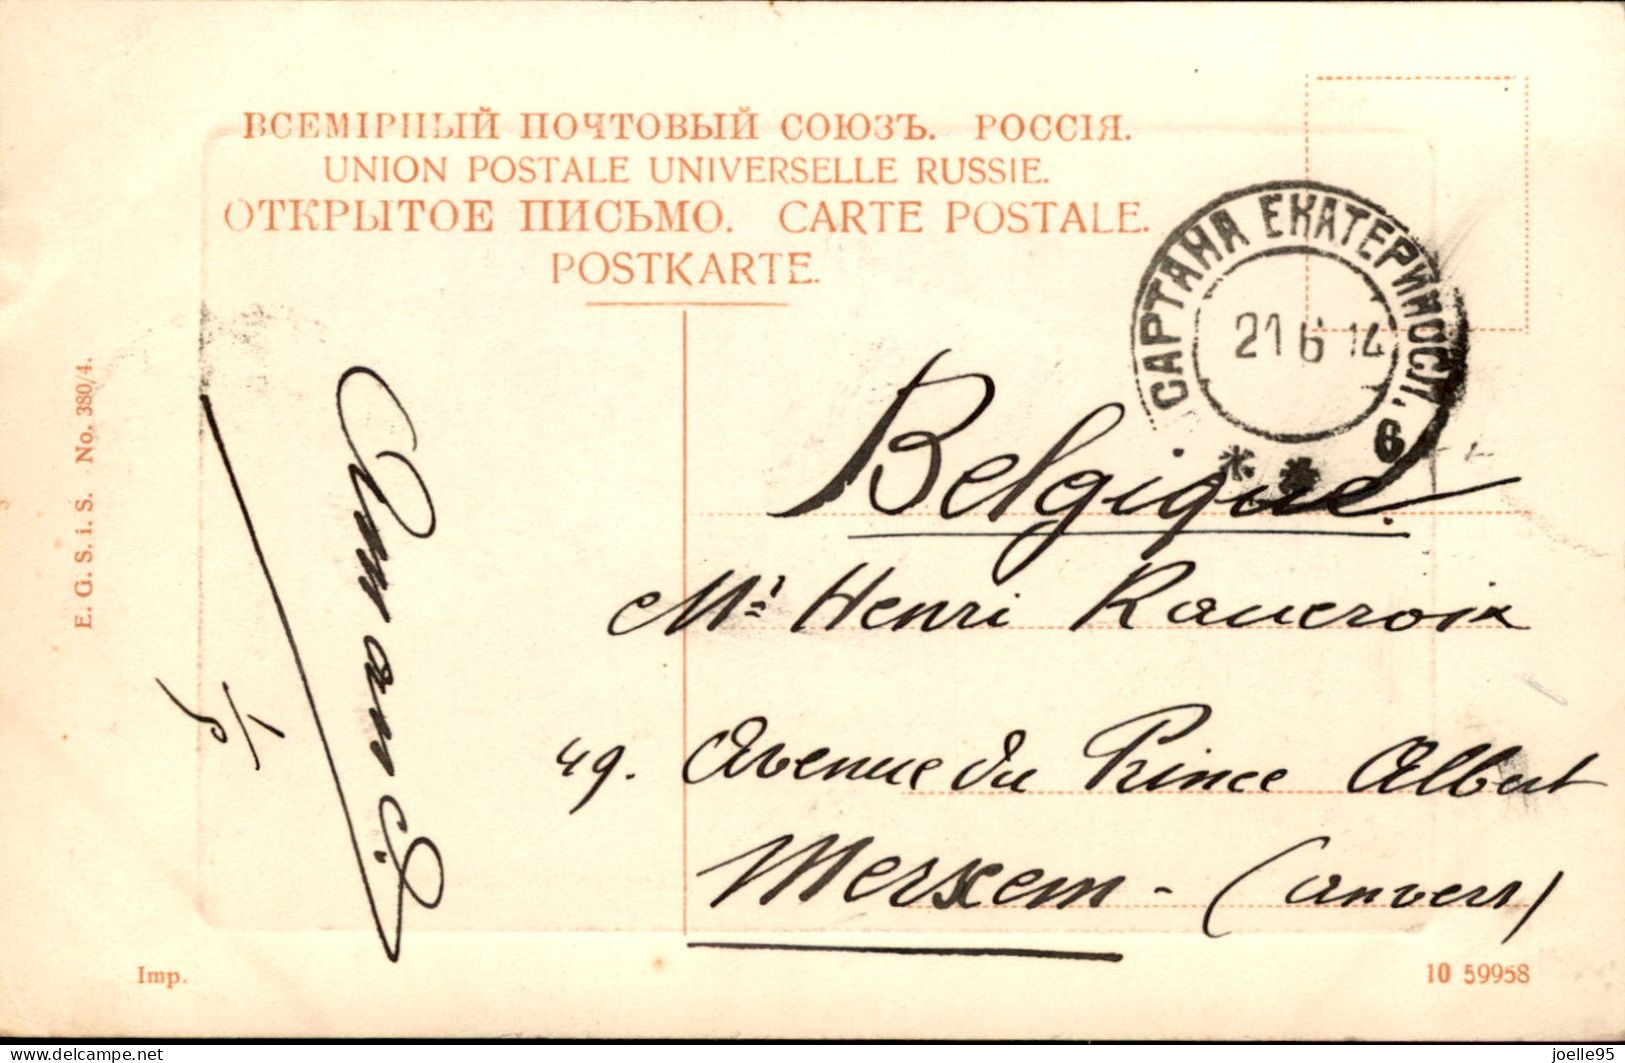 ВСЕМІРНЫЙ ПОЧТОВЫЙ СОЮЗЪ. РОССІЯ.
UNION POSTALE UNIVERSELLE RUSSIE.
ОТКРЫТОЕ ПИСЬМО. CARTE POSTALE.
POSTKARTE.
САРТАНА ЕКАТЕРИНОСЛ.
21 6 14
* * б
Belgique.
Mr Henri Raucroix
49. Avenue du Prince Albert
Merxem - (Anvers)
E. G. S. i. S. No. 380/4.
Imp.
10 59958
delcampe.net
joelle95